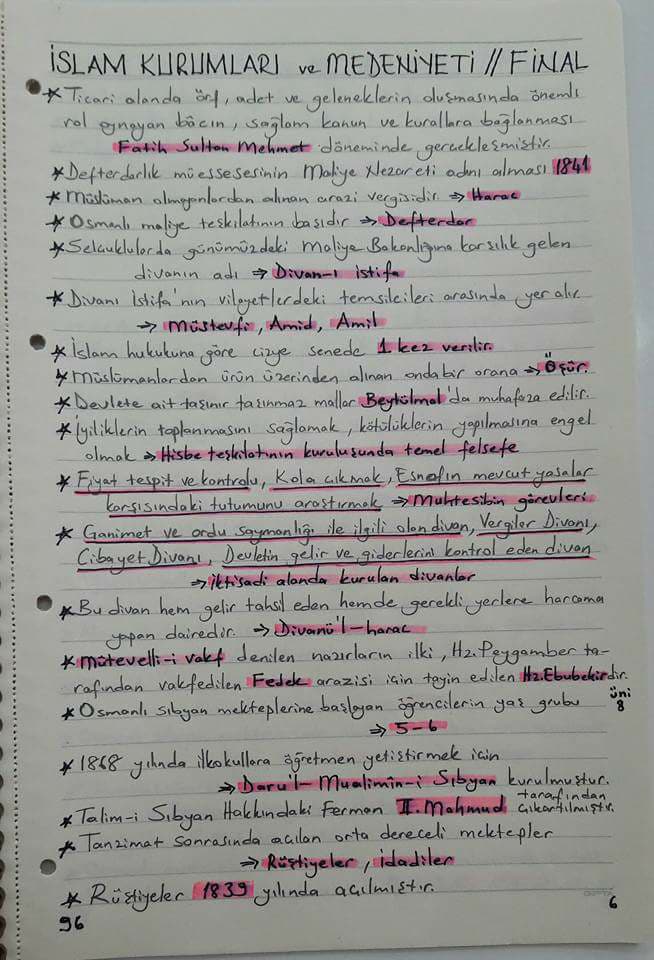 İSLAM KURUMLARI ve MEDENİYETİ // FİNAL
* Ticari alanda örf, adet ve geleneklerin oluşmasında önemli
rol oynayan bâcın, sağlam kanun ve kurallara bağlanması
Fatih Sultan Mehmet döneminde gerçekleşmiştir.
* Defterdarlık müessesesinin Maliye Nezareti adını alması 1841
* Müslüman olmayanlardan alınan arazi vergisidir. ⇒ Harac
* Osmanlı maliye teşkilatının başıdır ⇒ Defterdar
* Selçuklularda günümüzdeki Maliye Bakanlığına karşılık gelen
divanın adı ⇒ Divan-ı istifa
* Divanı İstifa'nın vilayetlerdeki temsilcileri arasında yer alır.
⇒ Müstevfi, Amid, Amil
* İslam hukukuna göre cizye senede 1 kez verilir.
* Müslümanlardan ürün üzerinden alınan onda bir orana ⇒ Öşür.
* Devlete ait taşınır taşınmaz mallar Beytülmal'da muhafaza edilir.
* İyiliklerin toplanmasını sağlamak, kötülüklerin yapılmasına engel
olmak ⇒ Hisbe teşkilatının kuruluşunda temel felsefe
* Fiyat tespit ve kontrolu, Kola çıkmak, Esnafın mevcut yasalar
karşısındaki tutumunu araştırmak ⇒ Muhtesibin görevleri
* Ganimet ve ordu saymanlığı ile ilgili olan divan, Vergiler Divanı,
Cibayet Divanı, Devletin gelir ve giderlerini kontrol eden divan
⇒ İktisadi alanda kurulan divanlar
* Bu divan hem gelir tahsil eden hemde gerekli yerlere harcama
yapan dairedir. ⇒ Divanü'l-harac
* Mütevelli-i vakf denilen nazırların ilki, Hz. Peygamber ta-
rafından vakfedilen Fedek arazisi için tayin edilen Hz. Ebubekir'dir.
* Osmanlı sıbyan mekteplerine başlayan öğrencilerin yaş grubu
⇒ 5-6
üni
8
* 1868 yılında ilkokullara öğretmen yetiştirmek için
⇒ Daru'l-Mualimin-i Sıbyan kurulmuştur.
* Talim-i Sıbyan Hakkındaki Ferman II. Mahmud tarafından çıkartılmıştır.
* Tanzimat sonrasında açılan orta dereceli mektepler
⇒ Rüştiyeler, idadiler
* Rüştiyeler 1839 yılında açılmıştır.
96
6